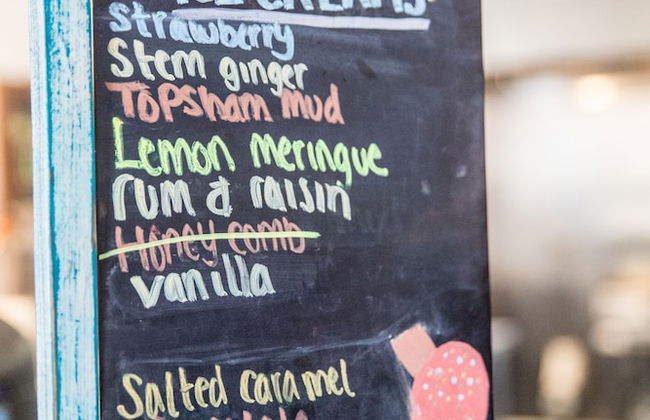 ICE CREAMS
Strawberry
Stem ginger
Topsham mud
Lemon meringue
rum & raisin
Honey comb
vanilla
Salted caramel